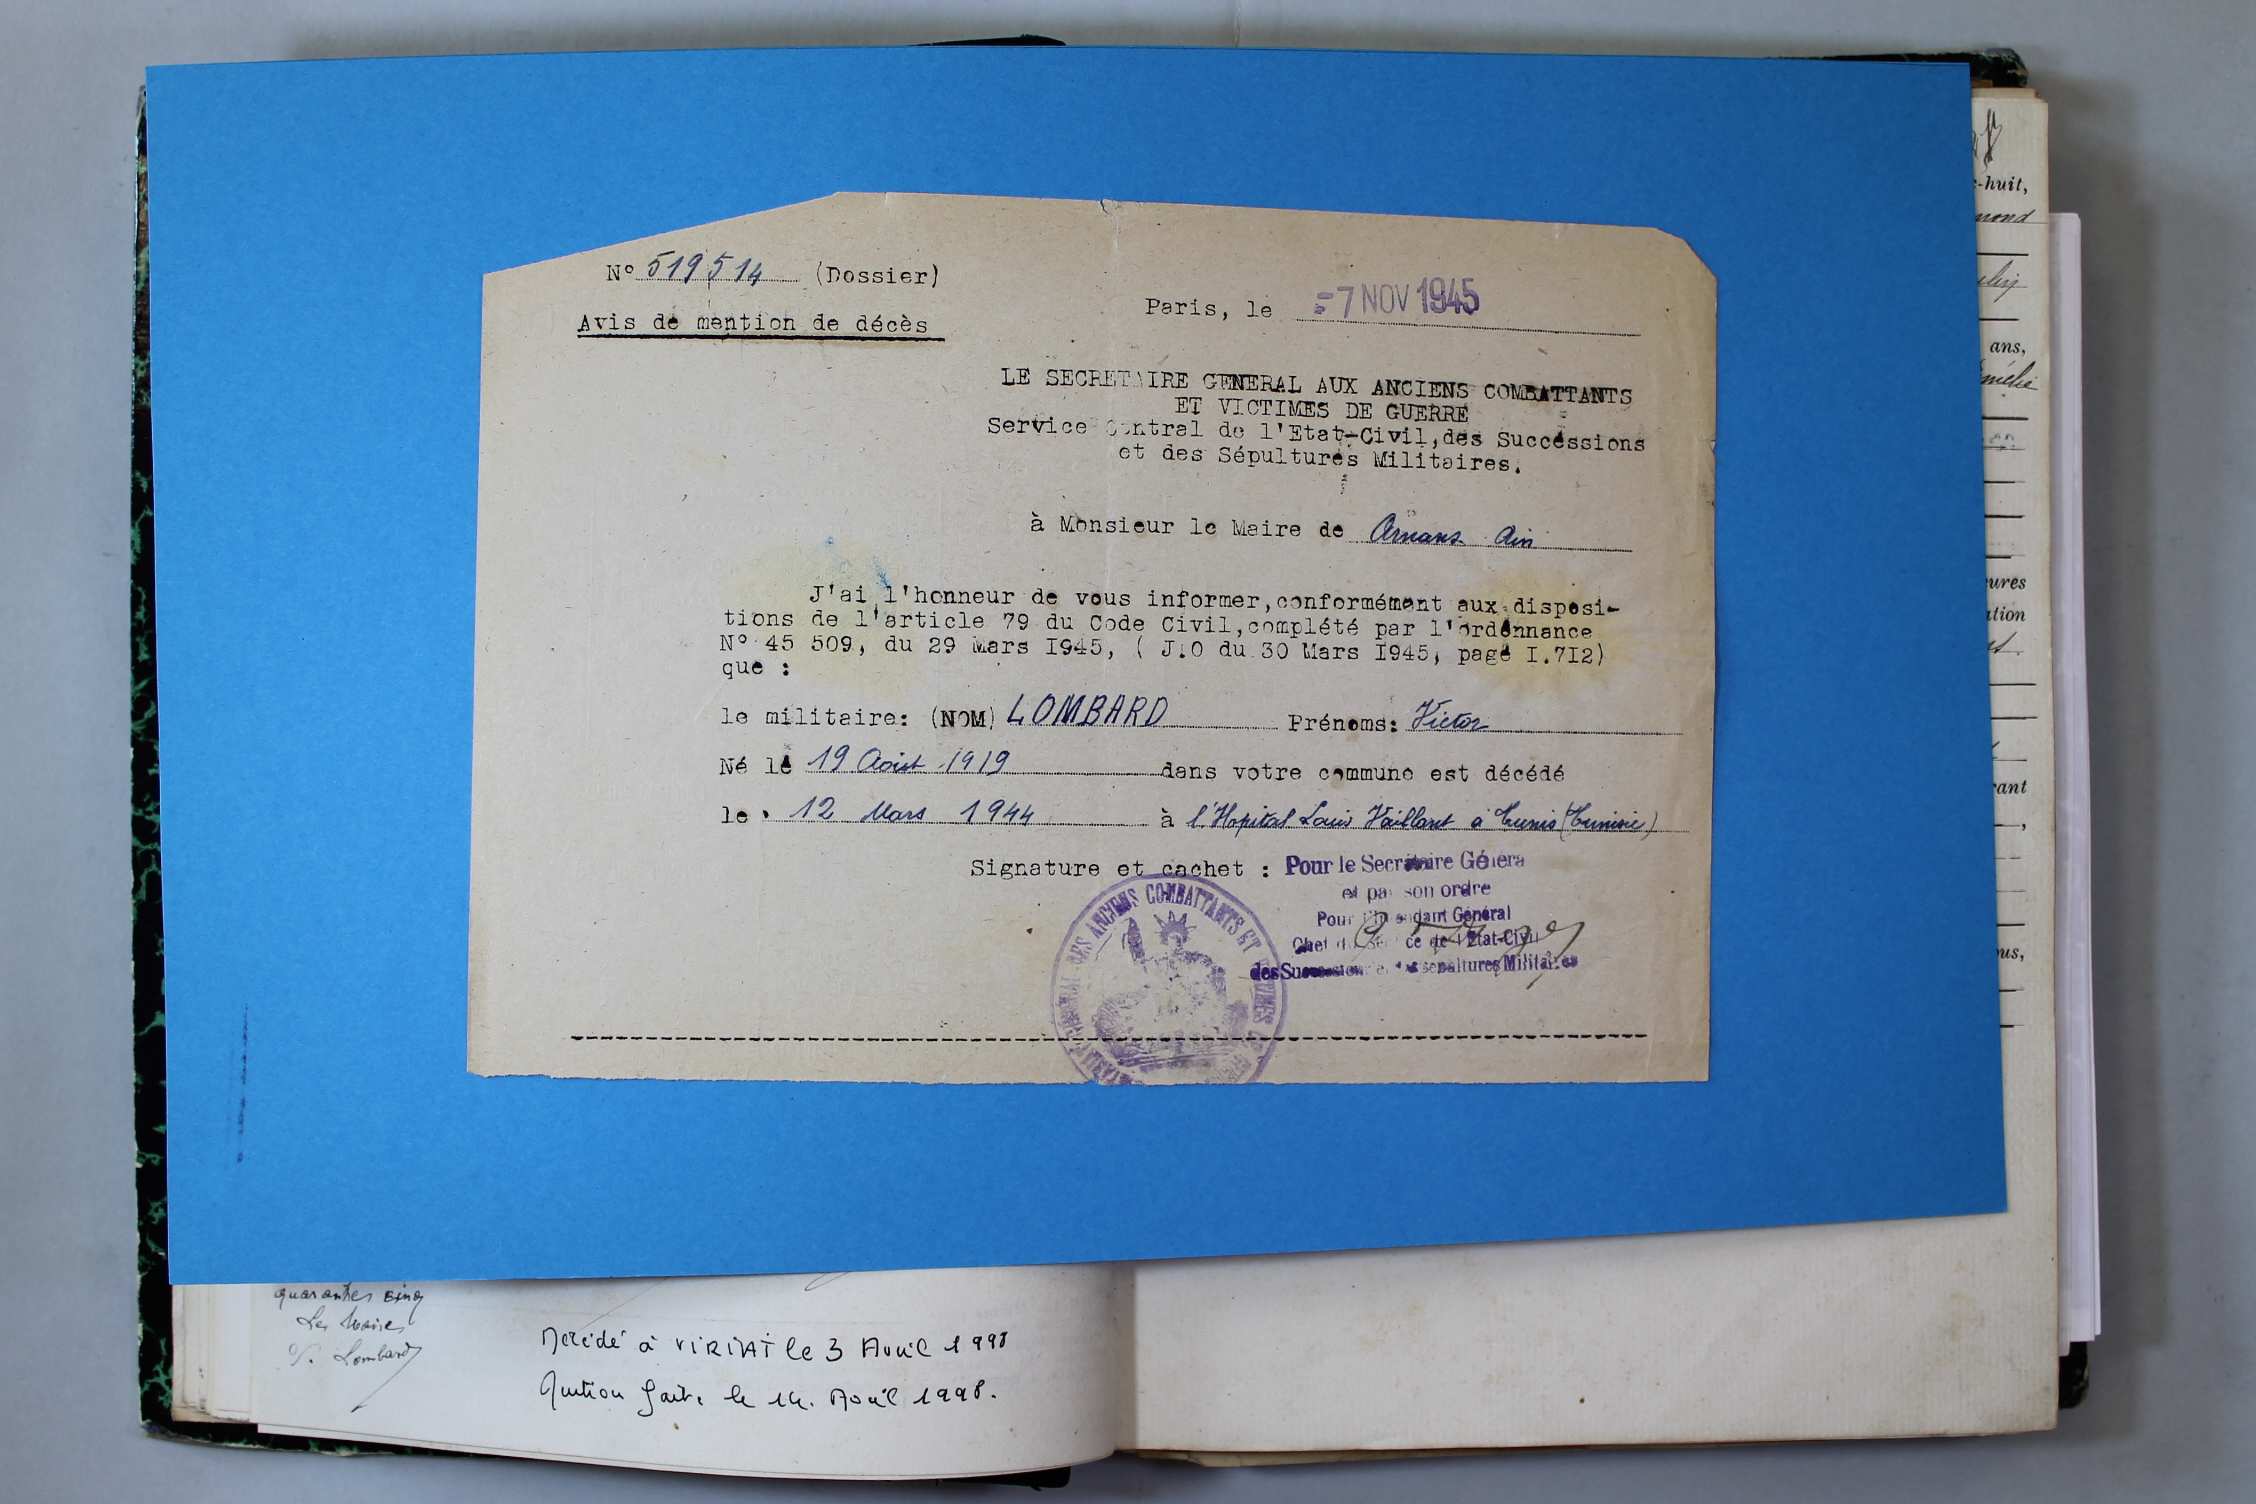 N° 519514 (Dossier)
Avis de mention de décès
Paris, le -7 NOV 1945
LE SECRETAIRE GENERAL AUX ANCIENS COMBATTANTS
ET VICTIMES DE GUERRE
Service Central de l'Etat-Civil, des Successions
et des Sépultures Militaires.
à Monsieur le Maire de Arnans Ain
J'ai l'honneur de vous informer, conformément aux disposi-
tions de l'article 79 du Code Civil, complété par l'ordonnance
N° 45 509, du 29 Mars I945, ( J.O du 30 Mars I945, page I.7I2)
que :
le militaire: (NOM) LOMBARD Prénoms: Victor
Né le 19 Août 1919 dans votre commune est décédé
le 12 Mars 1944 à l'Hopital Louis Vaillant à Tunis (Tunisie)
Signature et cachet : Pour le Secrétaire Général
et par son ordre
Pour l'Intendant Général
Chef du Service de l'Etat-Civil
des Successions et des sépultures Militaires
DES ANCIENS COMBATTANTS ET
-huit,
mond
ans,
ures
ation
rant
ous,
quarante cinq
Le Maire
V. Lombard
Décédé à VIRIAT le 3 Avril 1998
Mention faite le 14. Avril 1998.